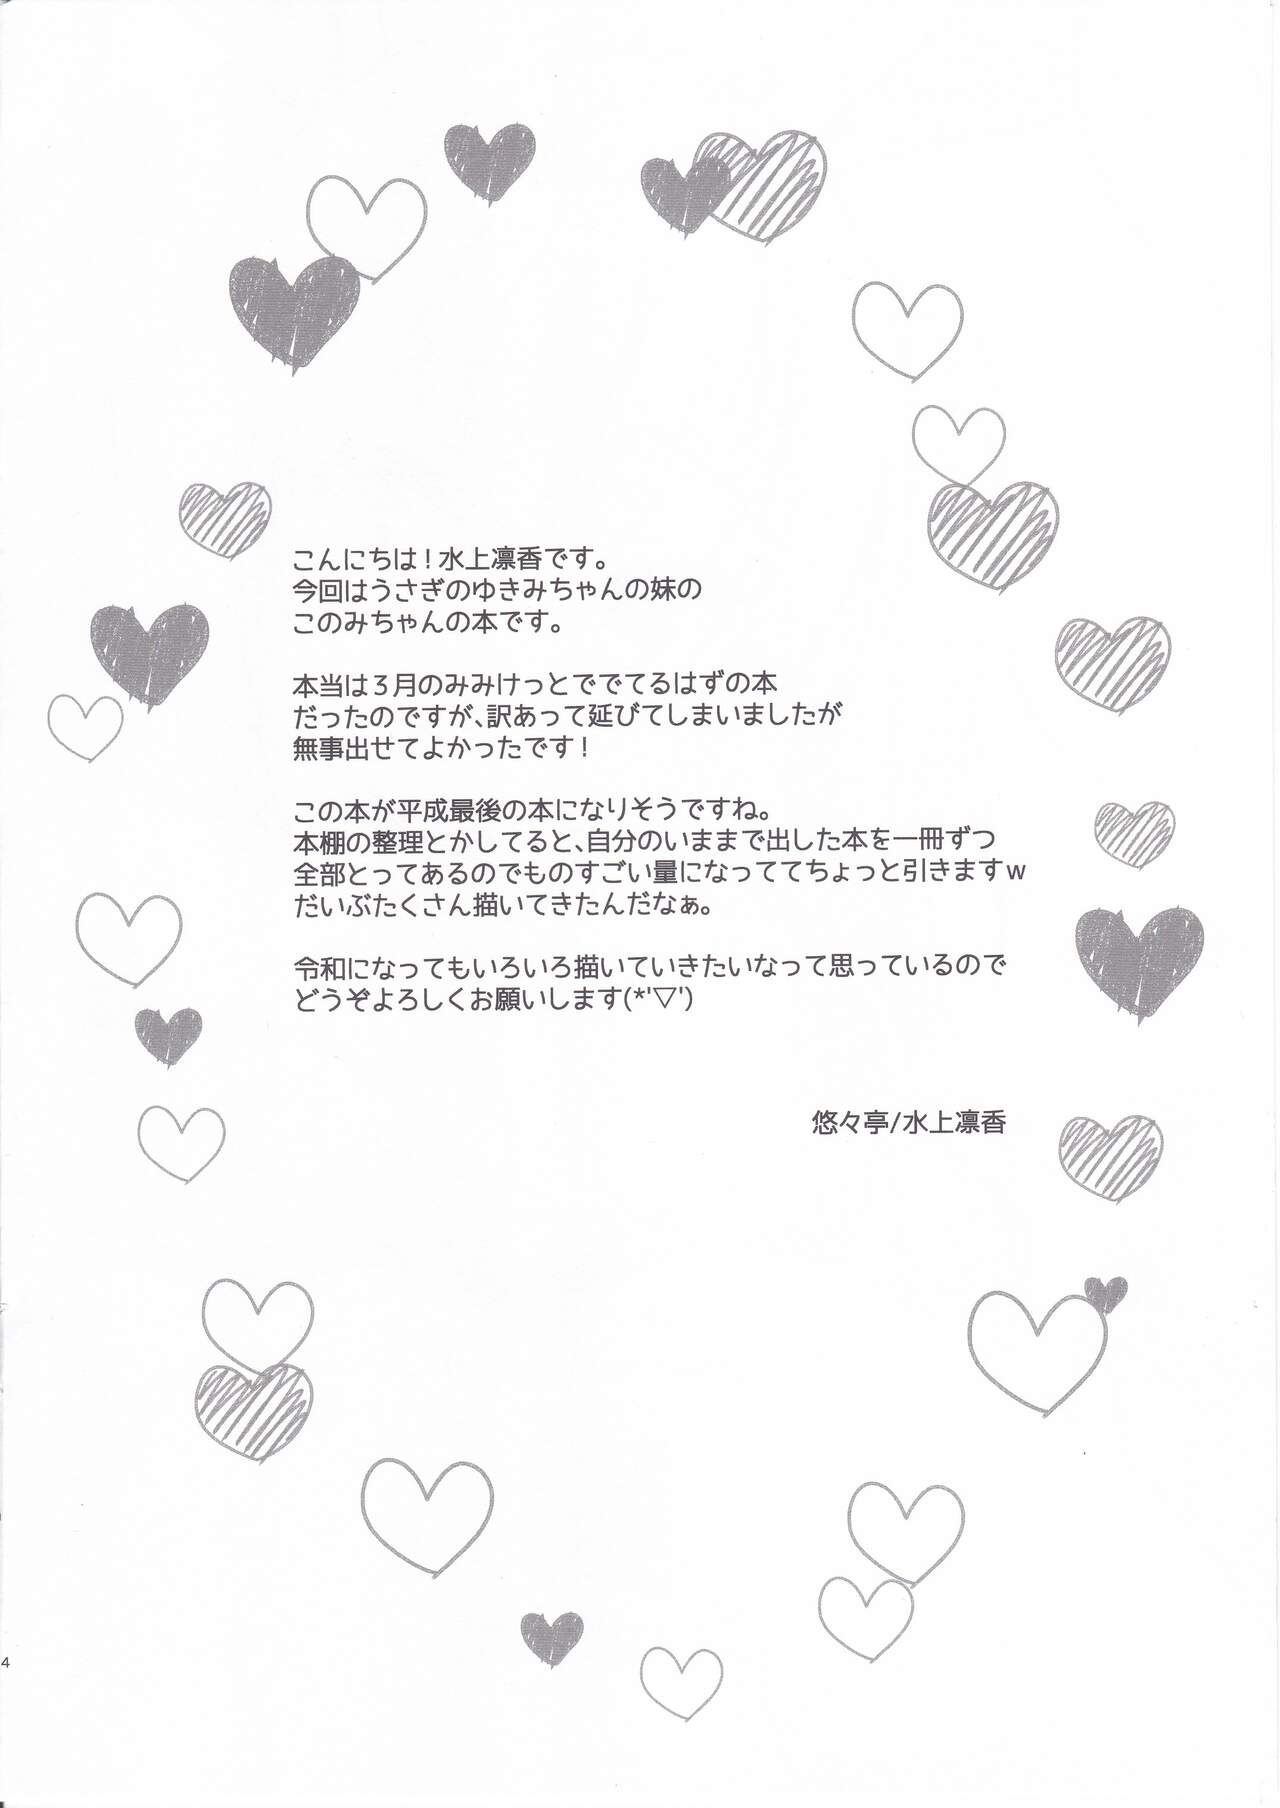 こんにちは！水上凛香です。
今回はうさぎのゆきみちゃんの妹の
このみちゃんの本です。
本当は３月のみみけっとででてるはずの本
だったのですが、訳あって延びてしまいましたが
無事出せてよかったです！
この本が平成最後の本になりそうですね。
本棚の整理とかしてると、自分のいままで出した本を一冊ずつ
全部とってあるのでものすごい量になっててちょっと引きますｗ
だいぶたくさん描いてきたんだなぁ。
令和になってもいろいろ描いていきたいなって思っているので
どうぞよろしくお願いします(*'▽')
悠々亭/水上凛香
4